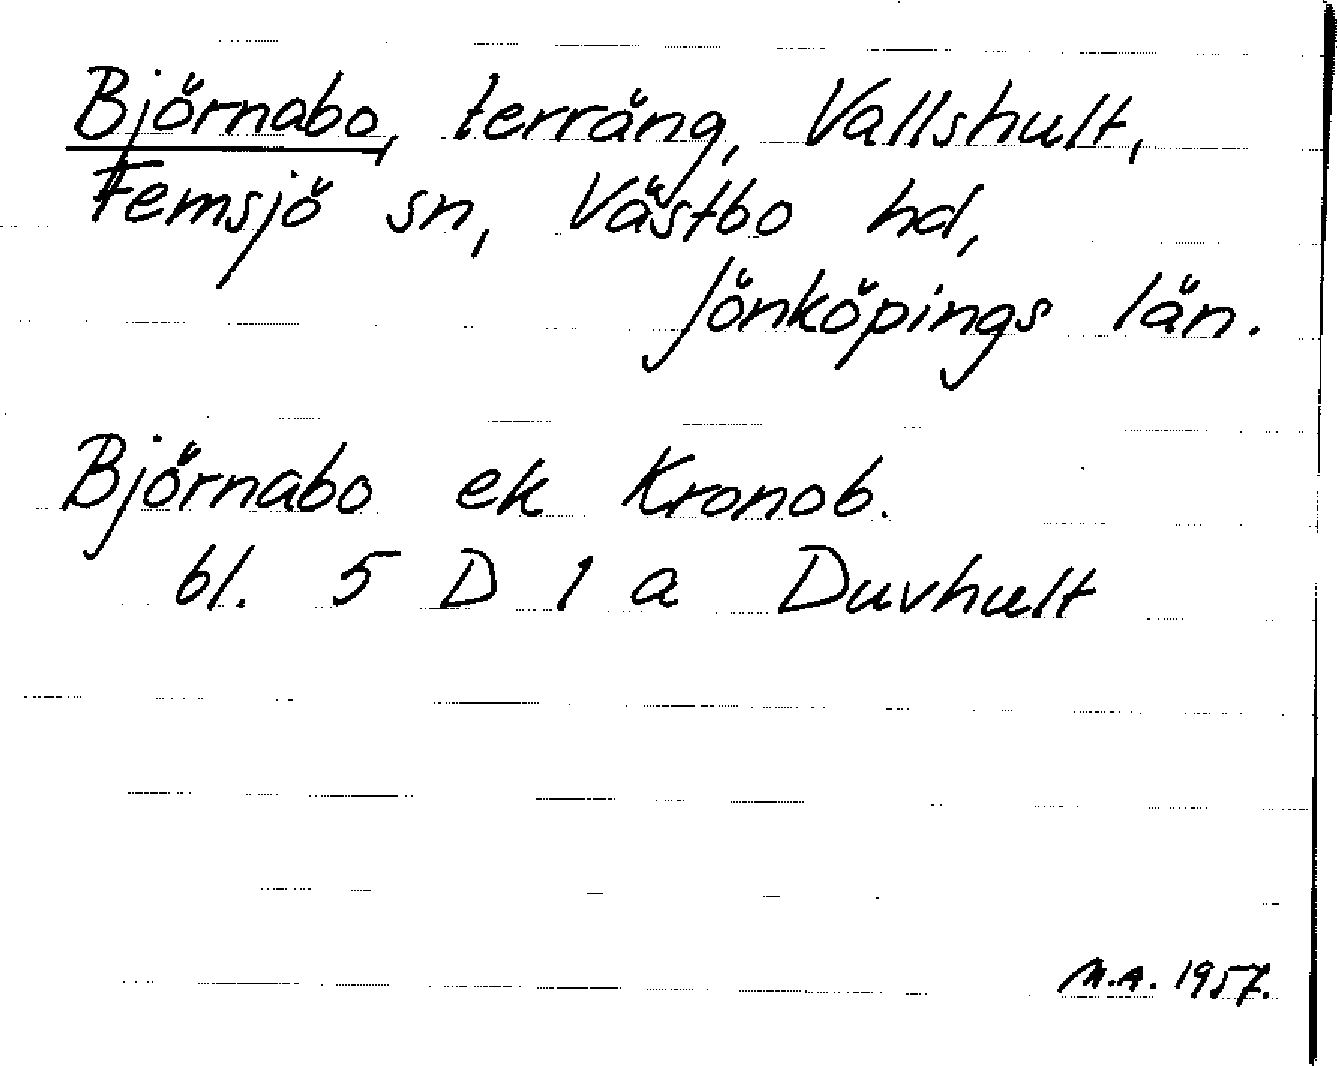 Björnabo, terräng, Vallshult,
Femsjö sn, Västbo hd,
Jönköpings län.
Björnabo ek Kronob.
bl. 5 D 1 a Duvhult
M.A. 1957.